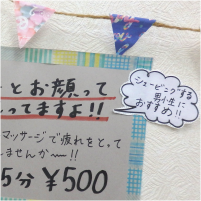 とお顔って
ってますよ!!
マッサージで疲れをとって
しませんか〜!!
5分 ¥500
シェービングする
男小生に
おすすめ!!